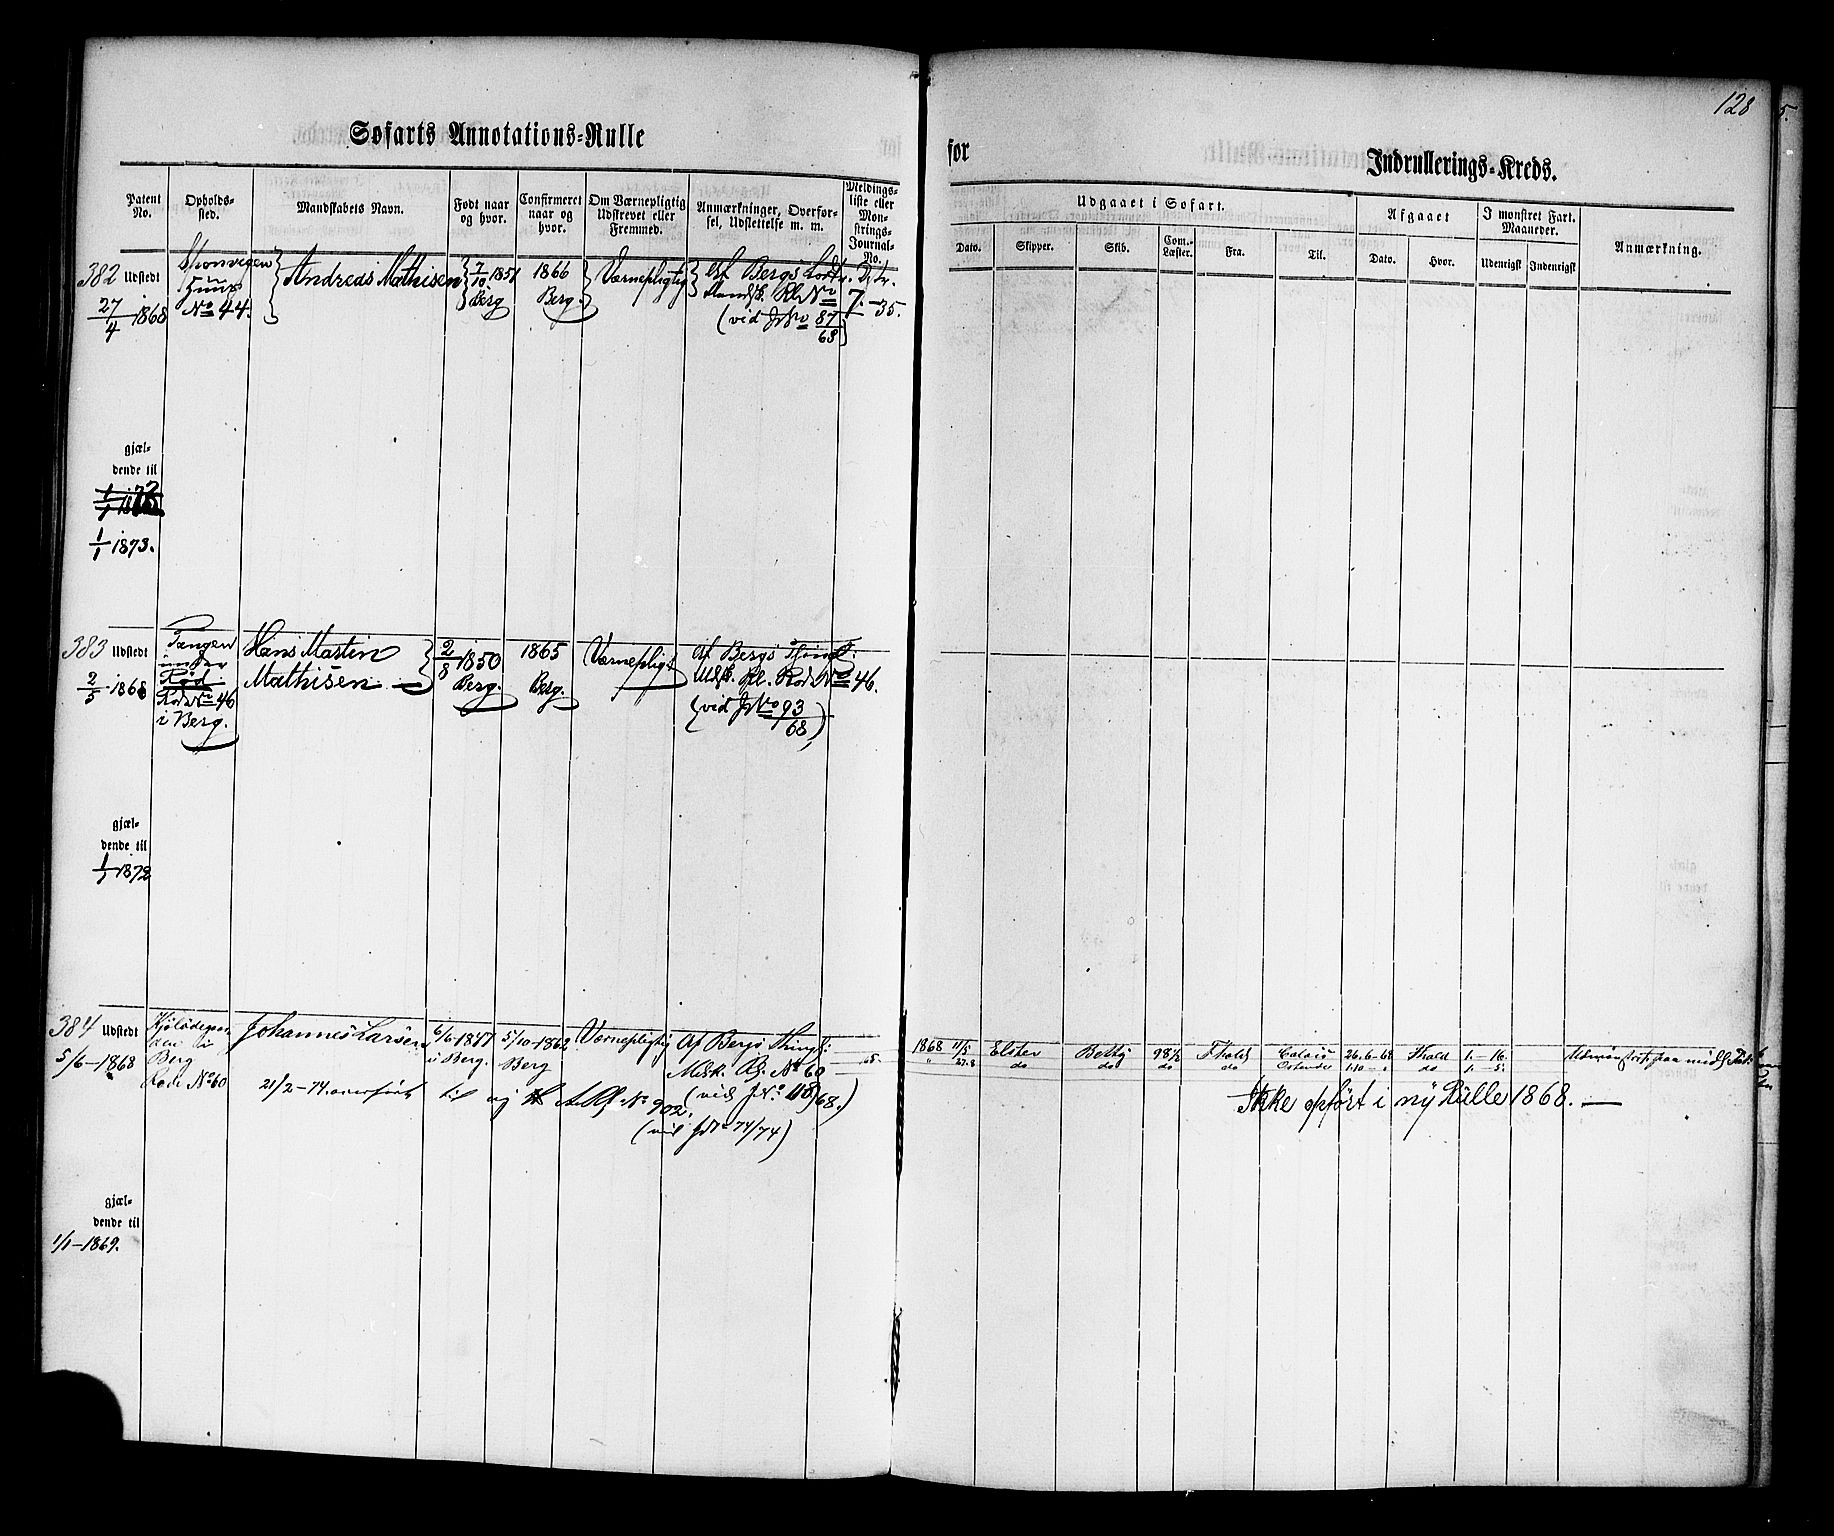 128
5.
Søfarts Annotations-Rulle
for
Indrullerings-Kreds.
Patent No.
Opholds-sted.
Mandskabets Navn.
Født naar og hvor.
Confirmeret naar og hvor.
Om Værnepligtig Udskrevet eller Fremmed.
Anmærkninger, Overførsel, Udslettelse m. m.
Meldings-liste eller Mønstrings-Journal-No.
Udgaaet i Søfart.
Afgaaet
I mønstret Fart. Maaneder.
Anmærkning.
Dato.
Skipper.
Skib.
Com.-Læster.
Fra.
Til.
Dato.
Hvor.
Udenrigst
Indenrigst
382 Udstedt
27/4 1868
No 44.
Andreas Mathisen
7/10 1851
Berg
1866
Berg.
Værnepligtig
Af Bergs
Rl. No 7.-35.
(vid J No 87/68)
gjæl-
dende til
1/1 1873.
383 Udstedt
2/5 1868
Tangen
under
Röd
Rode No 46
i Berg.
Hans Martin
Mathisen
2/8 1850
Berg.
1865
Berg.
Værnepligt
Af Bergs
Mdsk. Rl. Rode No 46.
(vid J No 93/68)
gjæl-
dende til
1/1 1872
384 Udstedt
5/6-1868
Berg
Rode No 60
Johannes Larsen
6/6-1847
i Berg.
5/10-1862
Berg
Værnepligtig
Af Bergs Thingl:
Mdsk. Rl: No 60
(vid J No 118/68.)
21/2-74 overført til ny A. Rl No 902.
(vid J No 74/74)
1868 11/5 Elster Betty 98½ Fhald Calais 26.6-68 Fhald 1. - 16.
" 27.8 do do do do Ostende 1.10 - " do 1. - 5.
Ikke opført i ny Rulle 1868.
gjæl-
dende til
1/1-1869.